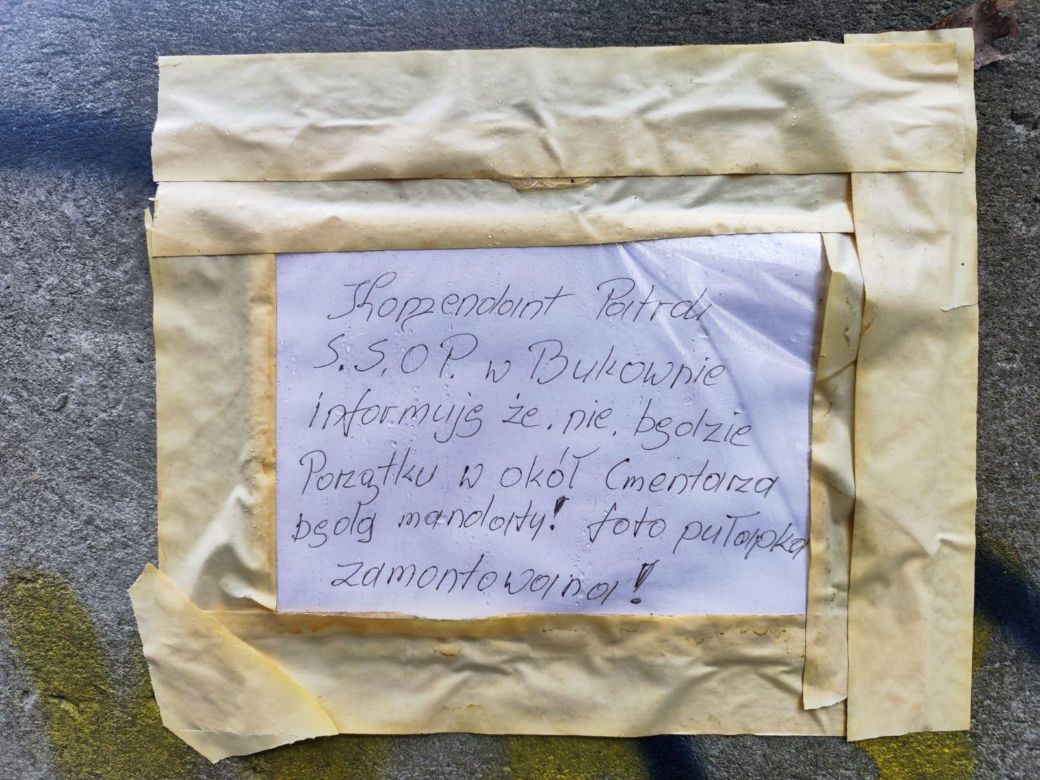 Komendant Patrolu
S.S.O P. w Bukownie
informuję że. nie. będzie
Porządku w okół Cmentarza
będą mandaty! foto pułapka
zamontowana!